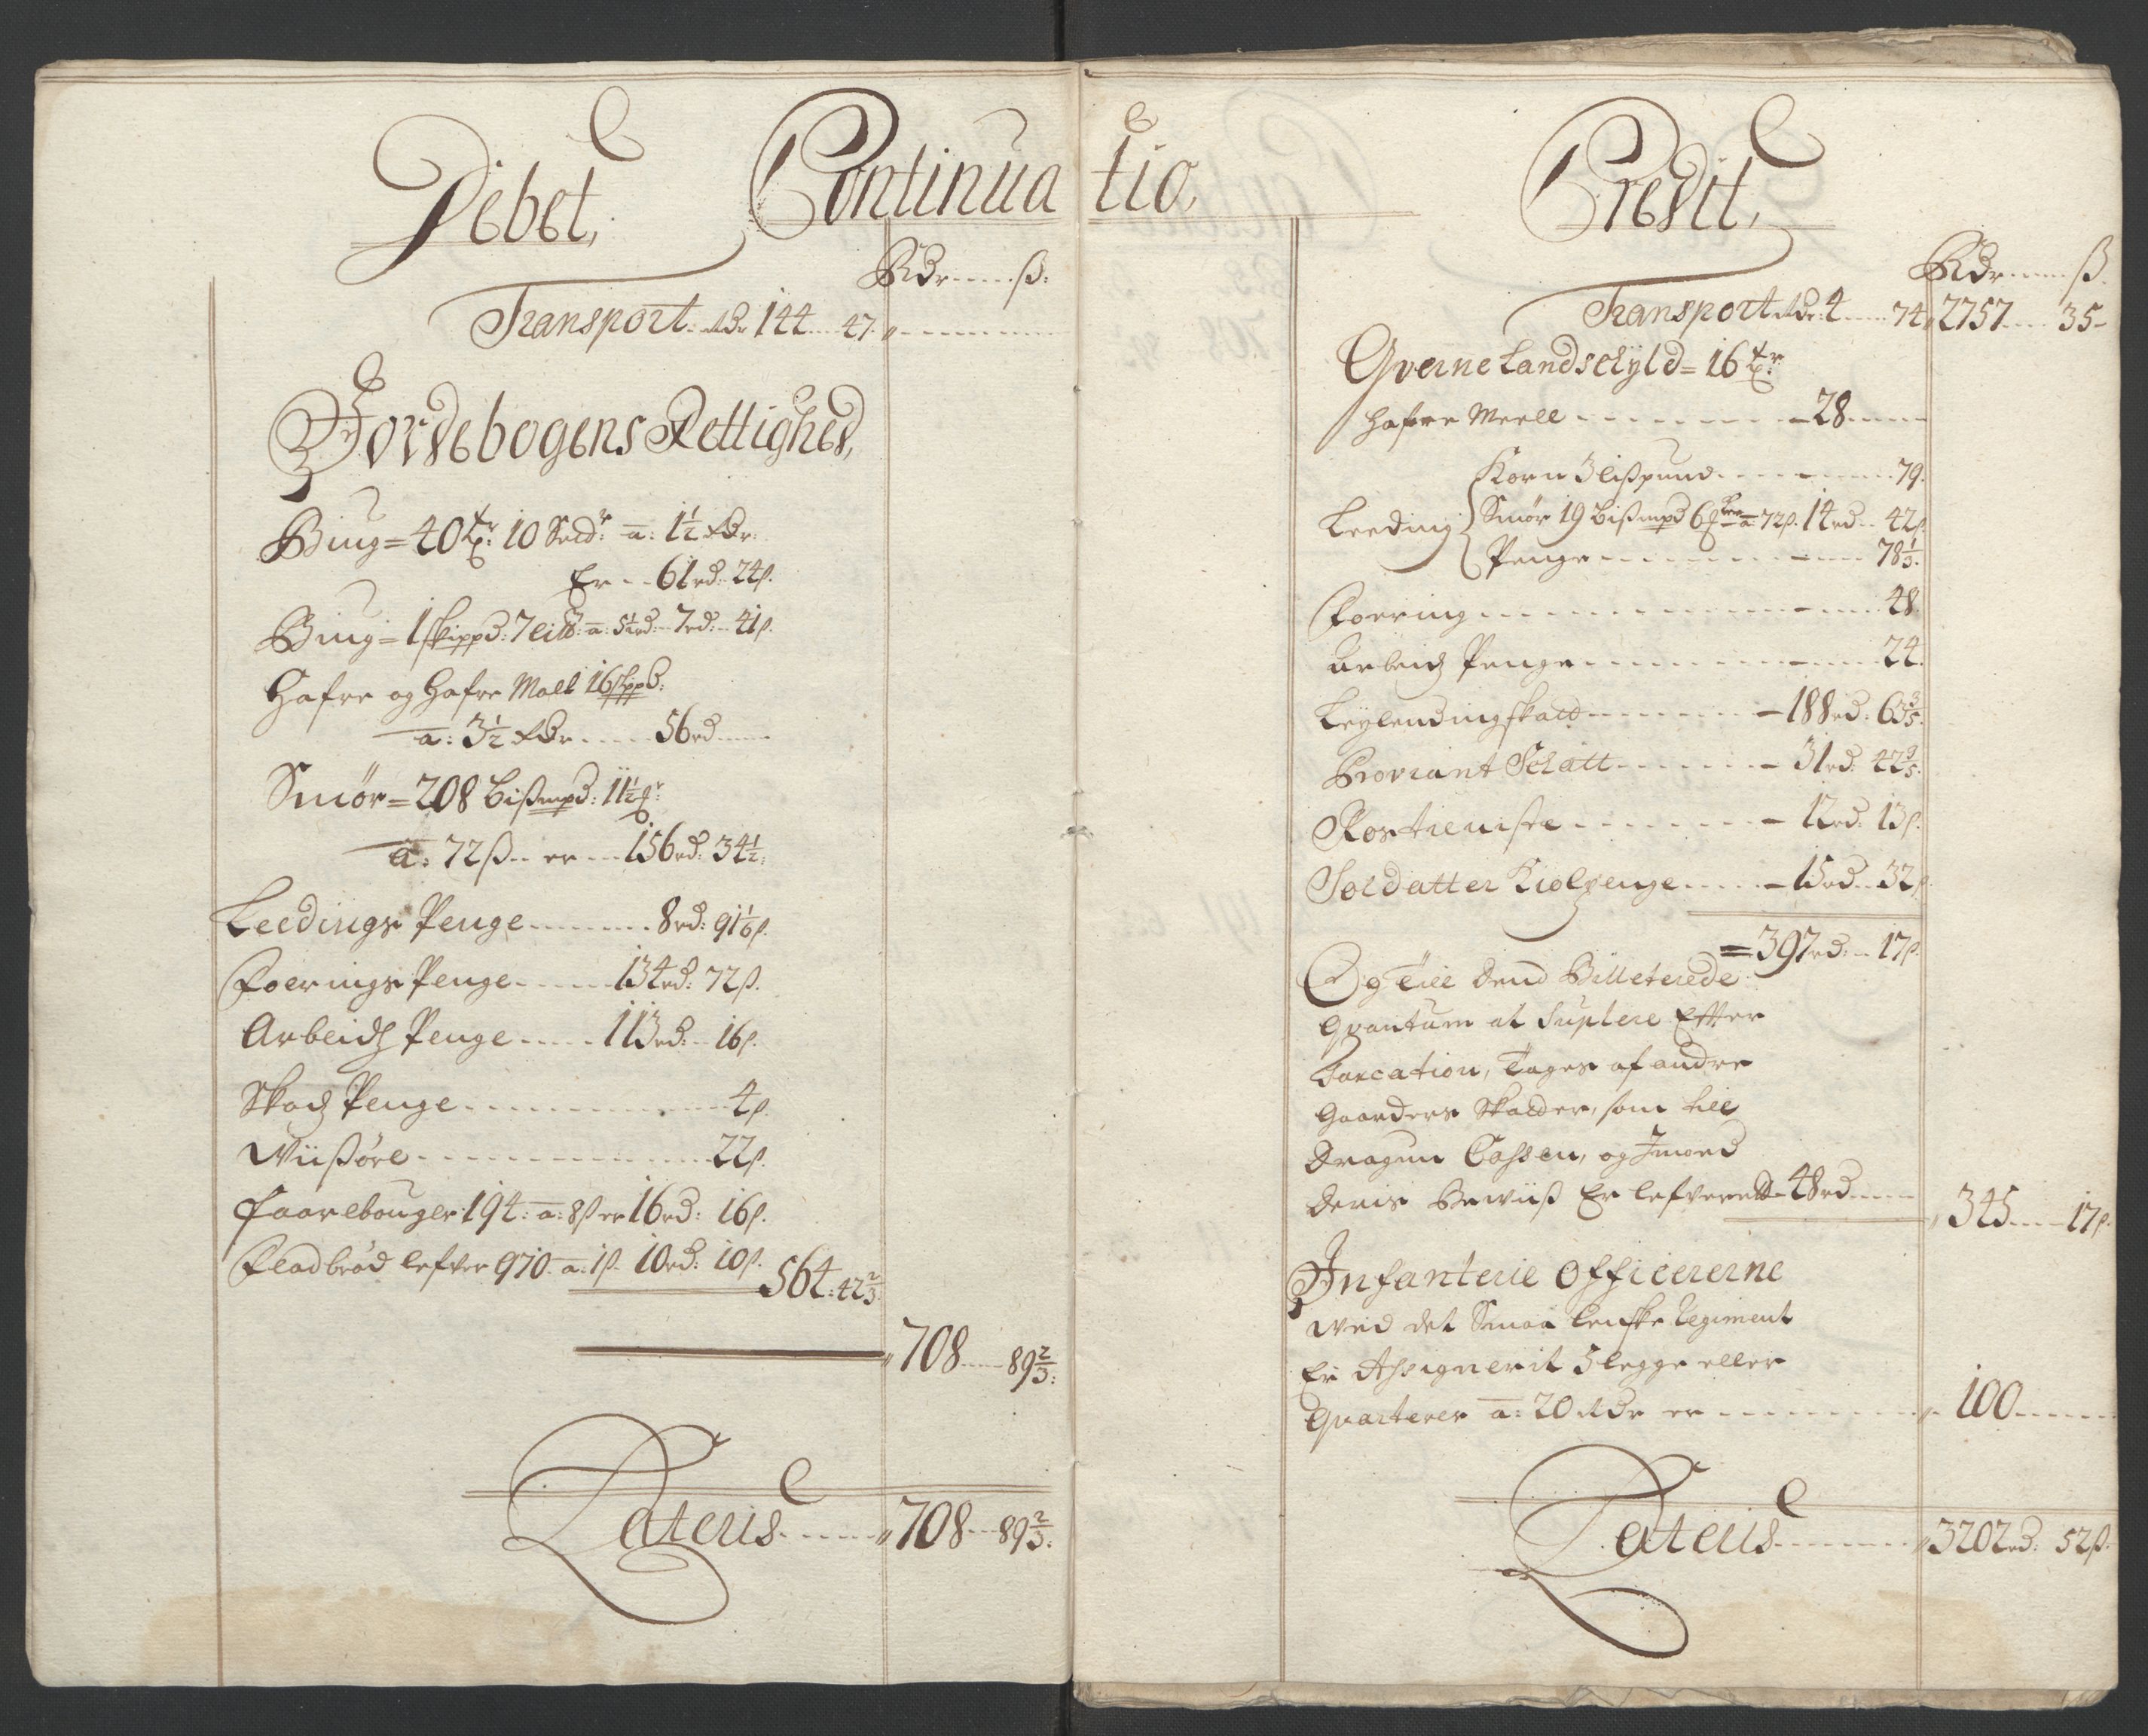 Debet, Continuatio, Credit,
Rdr ß:
Transport Rdr 144 47
Jordebogens Rettighed,
Biug = 40 tr: 10 Setd:r a: 1½ Rdr:
Er 61 rd: 24ß.
Biug = 1 skippd: 7 Lis℔: a: 5½rd: 7rd: 41ß.
Hafre og Hafre Mall 16 skippd:
a: 3½ Rdr 56rd
Smør = 208 Bißmpd: 11½ :
a: 72ß er 156rd: 34½:
Leedings Penge 8rd: 91 1/6ß.
Foerings Penge 134rd: 72ß.
Arbeidz Penge 113rd: 16ß.
Skodz Penge 4ß.
Wiißøre 22ß.
Faarebouger 194: a: 8ß er 16rd: 16ß.
Fladbrød lefver 970 a: 1ß 10rd: 10ß.
564: 42 2/3:
708 89 2/3:
Lateris 708 89 2/3:
Rdr ß.
Transport Rdr 4 74 2757 35
Qverne Landschyld = 16 tr:
Hafre Meell 28
Korn 3 lißpund 79.
Leeding Smør 19 Bißmpd 6 a 72ß. 14rd 42ß.
Penge 78 1/3.
Foering 48.
Arbeidz Penge 24.
Leylendingskatt 188rd: 63 3/5.
Proviant Schatt 31rd: 42 9/5.
Rostieniste 12rd: 13ß.
Soldatter Kiolpenge 15rd 32ß.
= 397rd: 17ß.
Og Till dend Billeterede
Qvantum at Suplere Efter
Taxcation, Tages af andre
Gaarders Skatder, som till
Dragun Cassen, og Imod
deris Bewiiß Er lefverett 48rd
345 17ß.
Infanterie Officererne
wed det Smaalenske Regiment
Er Assignerit 5 legge eller
Qvarterer a: 20 Rdr er 100
Lateris 3202rd: 52ß.